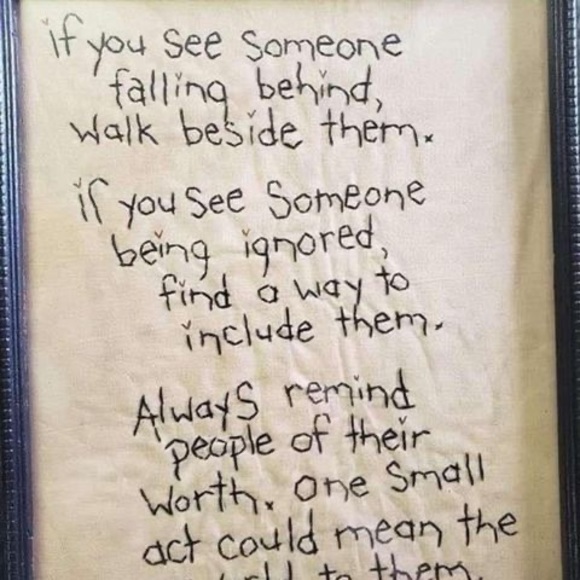 if you see someone
falling behind,
walk beside them.
if you see someone
being ignored,
find a way to
include them.
Always remind
people of their
worth. one small
act could mean the
to them.